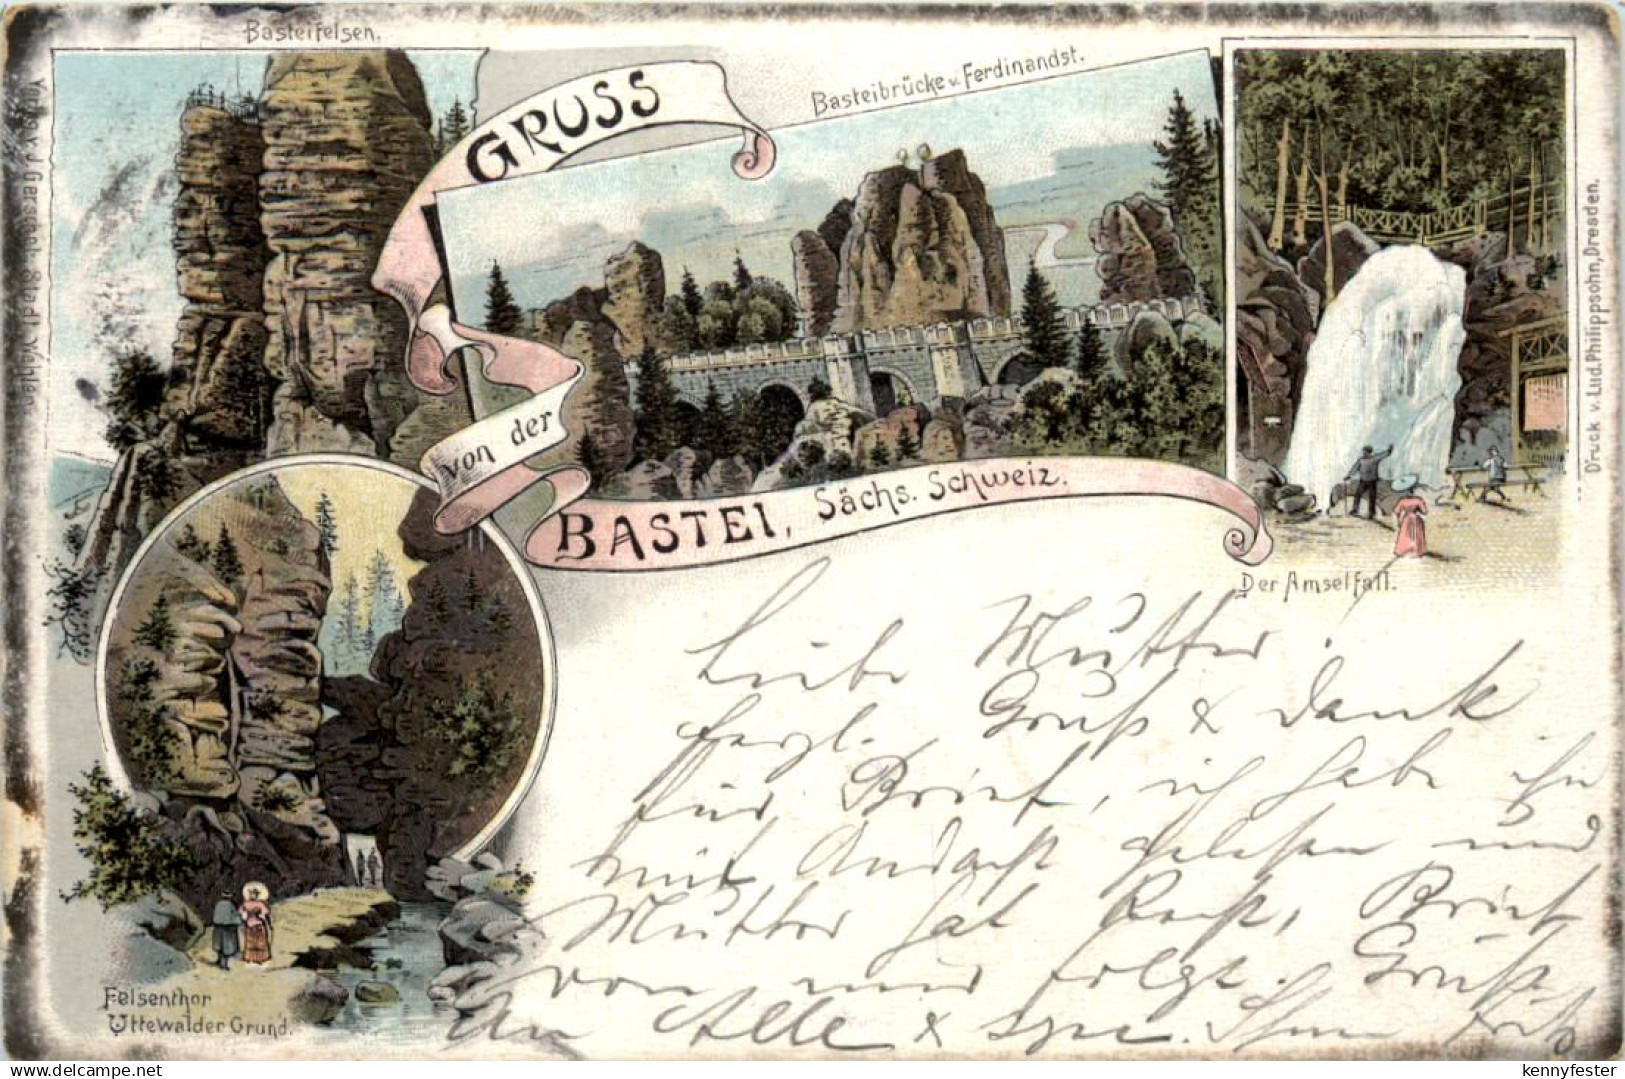 Basteifelsen.
GRUSS
von der
BASTEI, Sächs. Schweiz.
Basteibrücke v. Ferdinandst.
Der Amselfall.
Felsenthor
Uttewalder Grund.
Druck v. Lud. Philippsohn, Dresden.
Stadt Wehlen.
Liebe Mutter.
herzl. Gruß & Dank
für Brief, ich habe ihn
mit Andacht gelesen und
Mutter hat Recht, Brief
von mir folgt. Gruß
an Alle &
delcampe.net
kennyfester